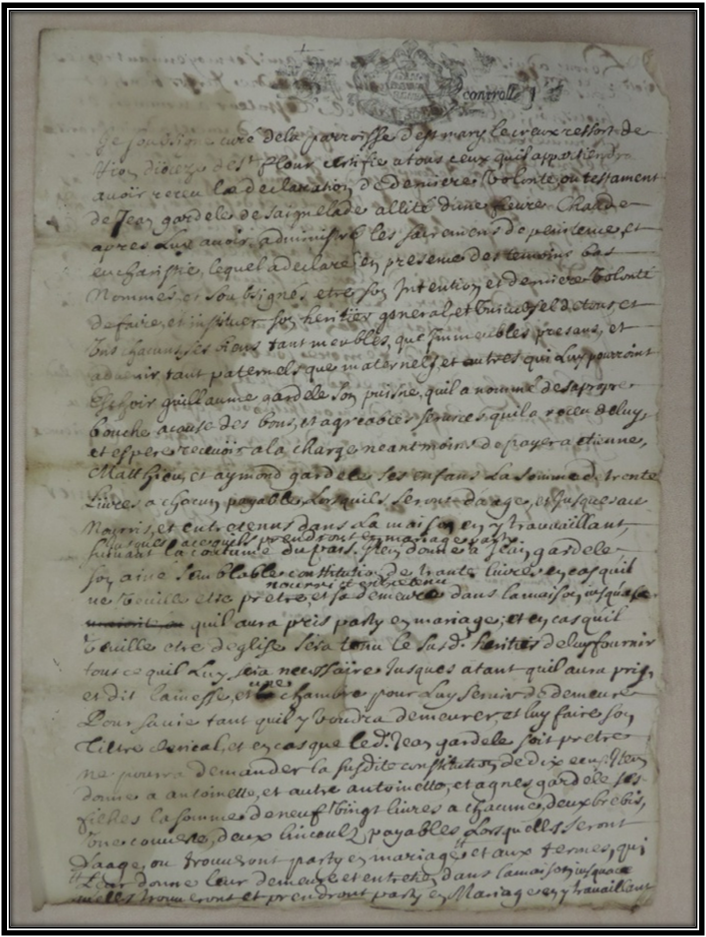 controllé
Je soubsigné curé de la parroisse de st mary le creux ressort de
diocèze de st flour certifie a tous ceux quil appartiendra
avoir receu la declaration de derniere volonté ou testament
de Jean gardele de saignelade allité d'une fievre Chaude
apres luy avoir administré les sacremens de penitence et
eucharistie, lequel a declaré en presence des temoins bas
nommés et soubsignés etre son Intention et derniere volonté
de faire, et instituer son heritier general et universel de tous, et
uns chacuns ses biens tant meubles, que Immeubles presens, et
advenir tant paternels que maternels, et autres qui luy pourroint
Eschoir guillaume gardele son puisne, quil a nommé de sa propre
bouche a cause des bons, et agreables services quil a receu de luy,
et espere recevoir a la charge neantmoins de payer a etienne,
Matthieu, et aymond gardele ses enfans la somme de trente
Livres a chacun payable lorsquils seront d'aage, et jusques ace
nourris, et entretenus dans la maison en y travaillant,
jusques ace quils prendront en mariage party
suivant la coutume du pais. Item donne a Jean gardele
son ainé semblable constitution de trante livres en cas quil
nourri et entretenu
ne vouille etre pretre, et sa demeure dans la maison jusqua ce
quil aura pris party en mariage, et en cas quil
vouille etre d'eglise sera tenu le susd. heritier de luy fournir
tout ce quil luy sera necessaire jusques a tant quil aura pris
une
et dit la messe, et chambre pour luy servir de demeure
Pour sa vie tant quil y voudra demeurer, et luy faire son
Tiltre clerical, et en cas que le d. Jean gardele soit pretre
ne pourra demander la susdite constitution de dix ecus. Item
donne a antoinette, et autre antoinette, et agnes gardele ses
filhes la somme de neuf vingt livres a chacune, deux brebis,
une couverte, deux linceulx payables lorsquelles seront
d'aage, ou trouveront party en mariage et aux termes, qui
Leur donne leur demeure et entretien dans la maison jusqua ce
quelles trouveront et prendront party en Mariage en y travaillant